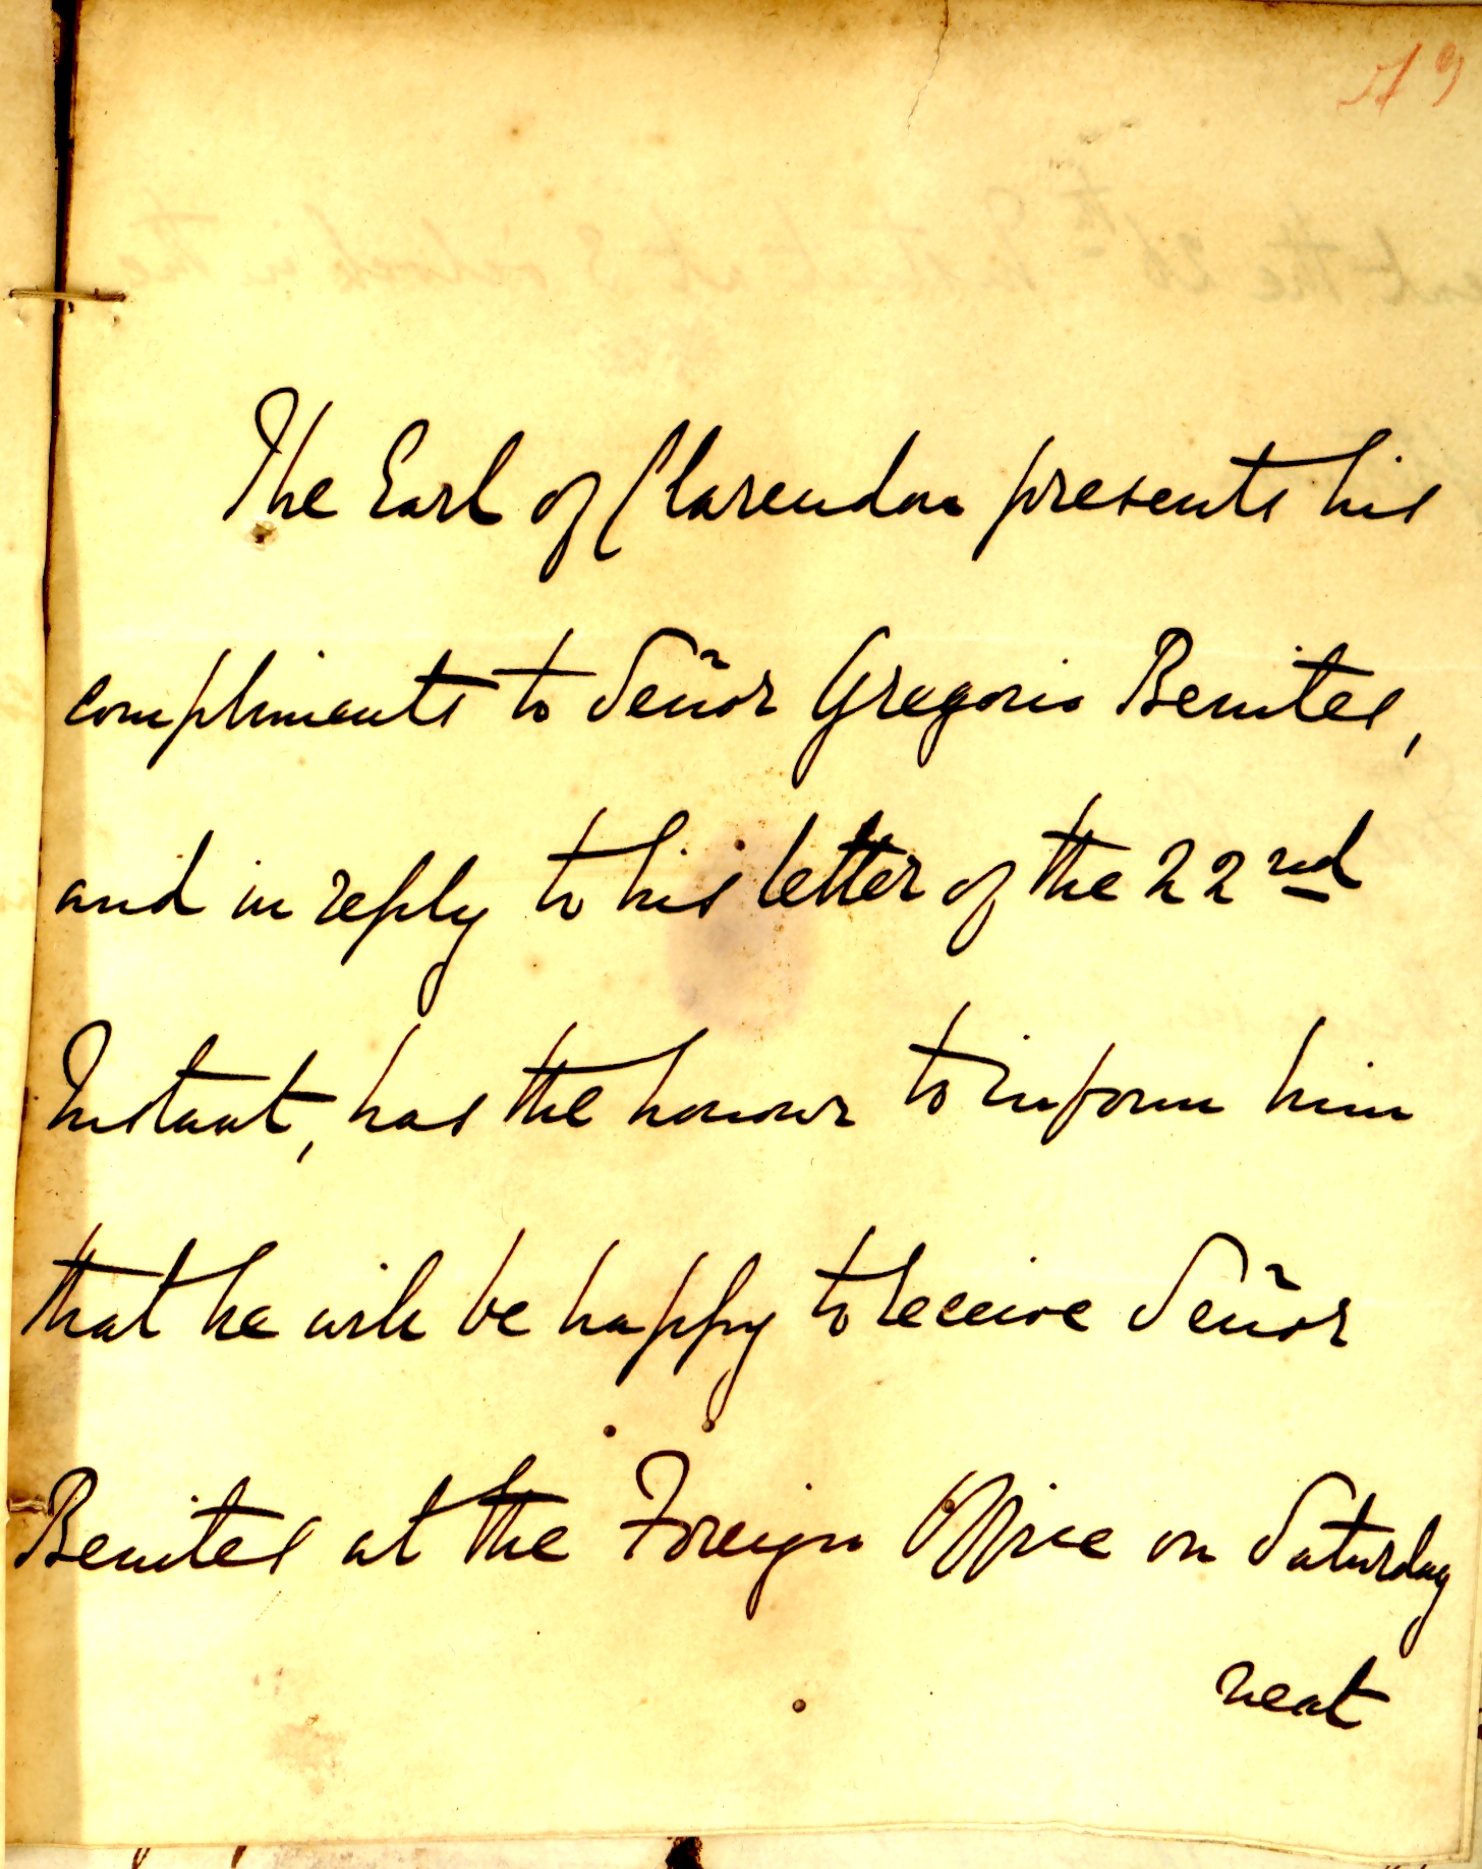 The Earl of Clarendon presents his
compliments to Señor Gregorio Benites,
and in reply to his letter of the 22nd
Instant, has the honour to inform him
that he will be happy to receive Señor
Benites at the Foreign Office on Saturday
next